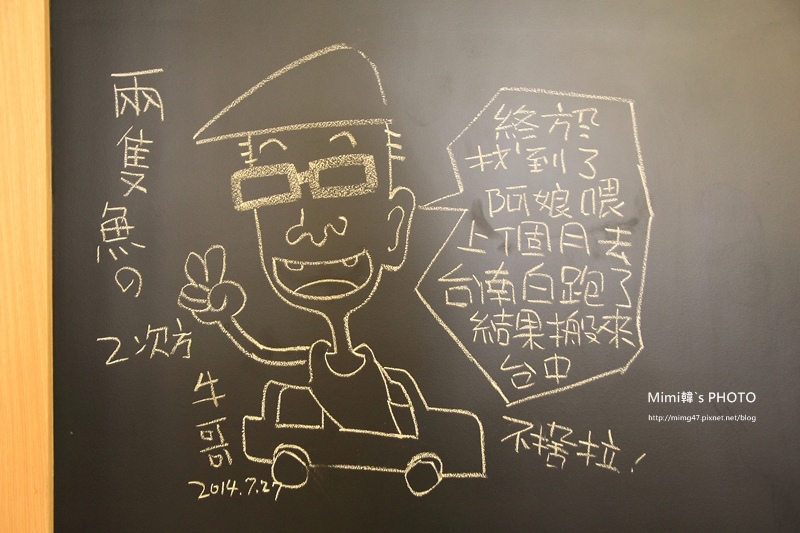 兩隻魚の
2次方
牛哥
2014.7.27
終於
找到了
阿娘喂
上個月去
台南白跑了
結果搬來
台中
Mimi韓`s PHOTO
http://mimg47.pixnet.net/blog